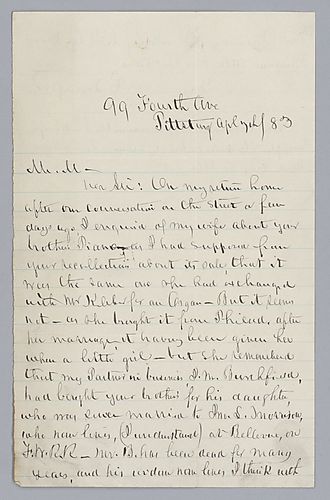 99 Fourth Ave
Pittsburg Apl 7th / 83
Mr. M—
Dear Sir: On my return home
after our conversation on the street a few
days ago I enquired of my wife about your
brothers Piano, as I had supposed from
your recollection about its sale, that it
was the same one she had exchanged
with Mr Kleber for an Organ — But it seems
not — as she bought it from a friend, after
her marriage, it having been given her
when a little girl — but she remembered
that my Partner in business J. M. Burchfield,
had bought your brothers for his daughter,
who was since married to Jno. S. Morrison,
who now lives, (I understand) at Bellevue, on
Ft. W. R.R — Mr. B. has been dead for many
years, and his widow now lives I think with